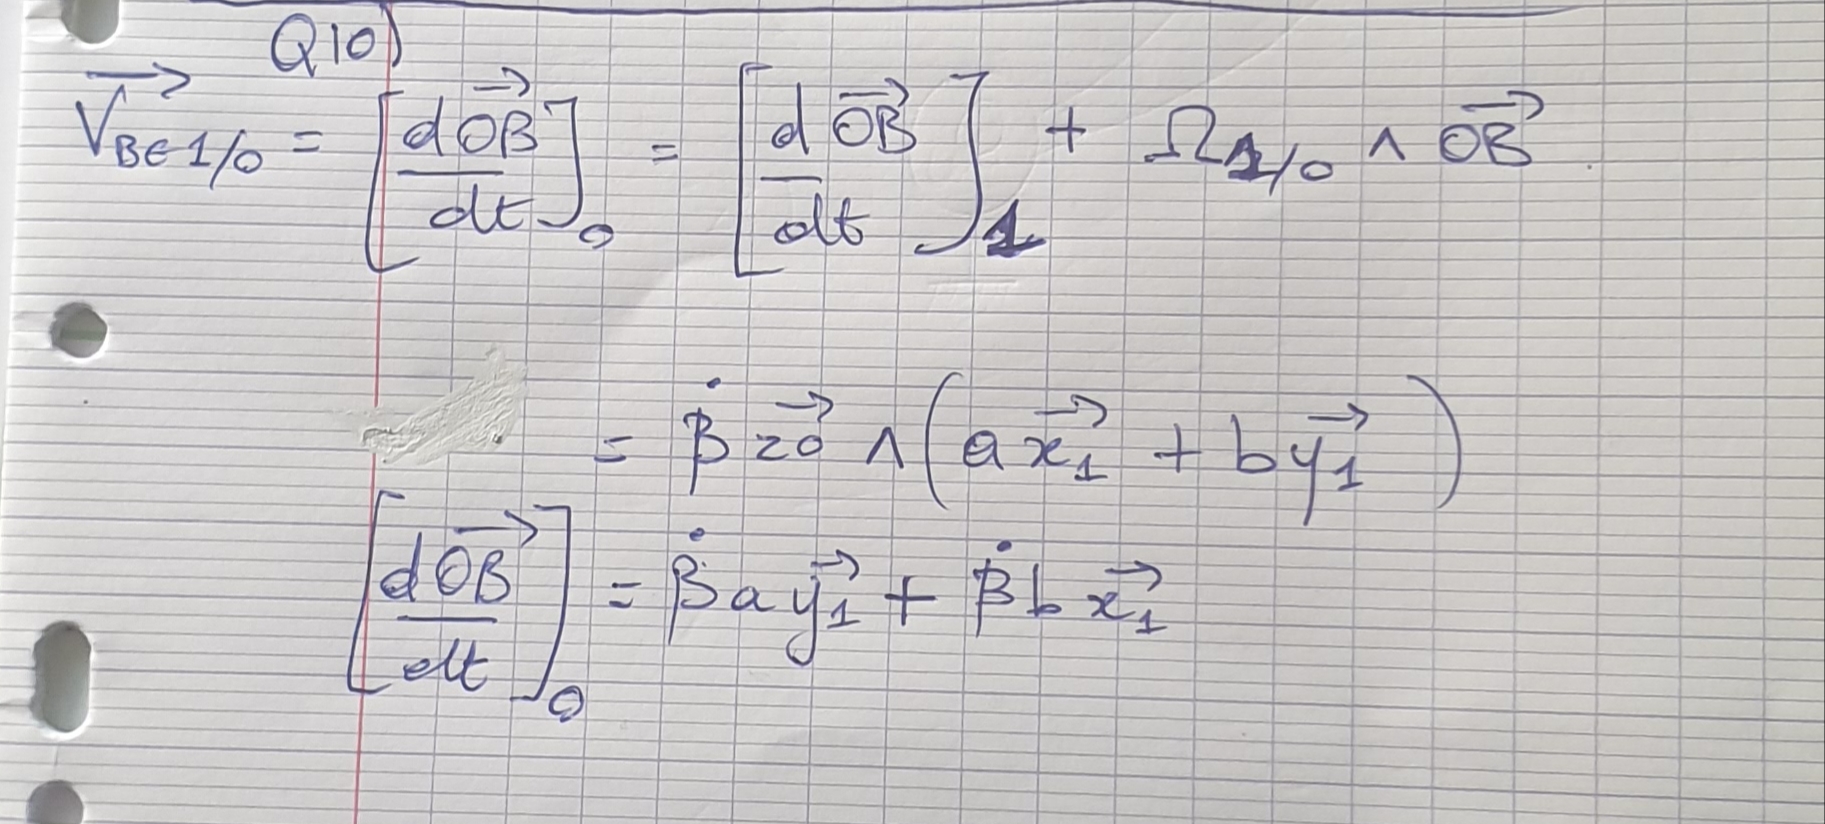 Q10)
$\overrightarrow{V_{B \in 1/0}} = \left[\frac{d\overrightarrow{OB}}{dt}\right]_0 = \left[\frac{d\overrightarrow{OB}}{dt}\right]_1 + \Omega_{1/0} \wedge \overrightarrow{OB}.$
$= \dot{\beta} \overrightarrow{z0} \wedge \left(a\overrightarrow{x_1} + b\overrightarrow{y_1}\right)$
$\left[\frac{d\overrightarrow{OB}}{dt}\right]_0 = \dot{\beta} a \overrightarrow{y_1} + \dot{\beta} b \overrightarrow{x_1}$